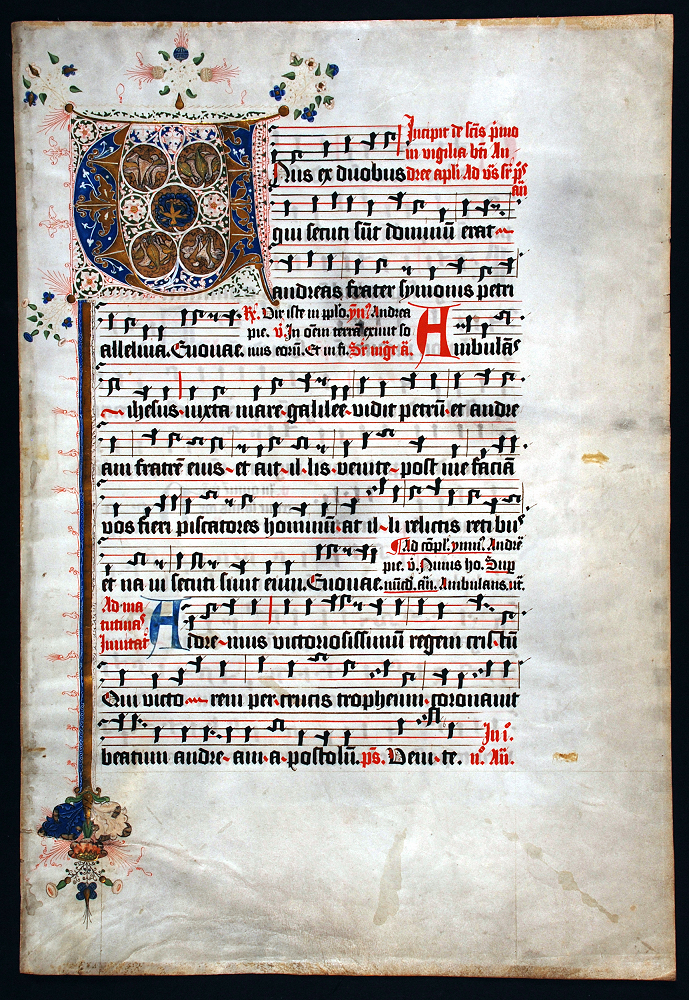 Incipit de sc̄is p̄mo
in vigilia bt̄i An
Unus ex duobus dree apli Ad v̄s sr̄ p̄s
an̄
qui secuti sūt dominū erat
andreas frater symonis petri
R̄. Vir iste in pp̄lo. ẏn⁹ Andrea
pie. v̄. In oēm terrā exiuit so
alleluia. Euouae. nus eorū. Et in fi. Sr̄ mḡt ā. Ambulās
ihesus iuxta mare galilee vidit petrū et andre
am fratrē eius et ait il lis venite post me faciā
vos fieri piscatores hominū at il li relictis reti bus
Ad cōpl. ymn⁹. Andree
pie. v̄. Nimis ho. Sup
et na ui secuti sunt eum. Euouae. nūcd. an̄. Ambulans. ut.
Ad ma
tutinas
Inuitat̄ Adore mus victoriosissimum regem cris tū
Qui victo rem per crucis tropheum coronauit
In i°.
beatum andre am a postolū. ps̄. Veni te. n° An̄.